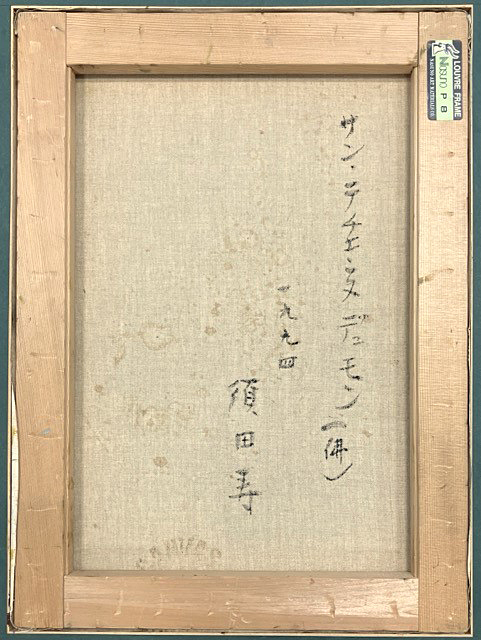 サン・テチエンヌ デュ モン (佛)
一九九四
須田寿
LOUVRE FRAME
P 8